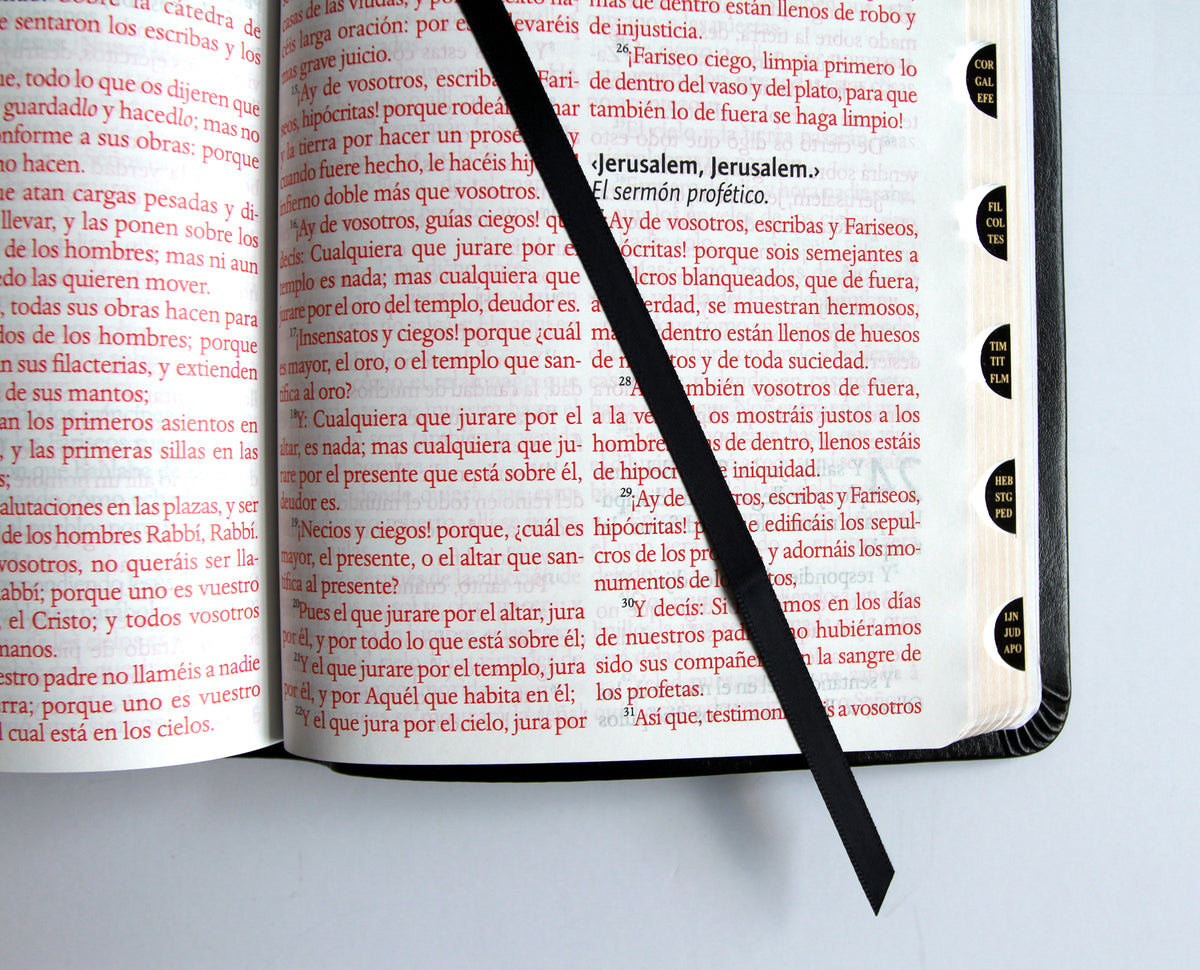 la cátedra de
e sentaron los escribas y los
ue, todo lo que os dijeren que
guardadlo y hacedlo; mas no
onforme a sus obras: porque
no hacen.
ue atan cargas pesadas y di-
llevar, y las ponen sobre los
de los hombres; mas ni aun
edo las quieren mover.
, todas sus obras hacen para
dos de los hombres; porque
n sus filacterias, y extienden
de sus mantos;
an los primeros asientos en
, y las primeras sillas en las
s;
alutaciones en las plazas, y ser
de los hombres Rabbí, Rabbí.
vosotros, no queráis ser lla-
abbí; porque uno es vuestro
, el Cristo; y todos vosotros
manos.
estro padre no llaméis a nadie
erra; porque uno es vuestro
l cual está en los cielos.
casas de las viudas, y
céis larga oración: por es levaréis
mas grave juicio.
15¡Ay de vosotros, escriba Fari-
seos, hipócritas! porque rodeá mar
y la tierra por hacer un prosé y
cuando fuere hecho, le hacéis hij
infierno doble más que vosotros.
16¡Ay de vosotros, guías ciegos! qu
decís: Cualquiera que jurare por e
templo es nada; mas cualquiera que
jurare por el oro del templo, deudor es.
17¡Insensatos y ciegos! porque ¿cuál
es mayor, el oro, o el templo que san-
tifica al oro?
18Y: Cualquiera que jurare por el
altar, es nada; mas cualquiera que ju-
rare por el presente que está sobre él,
deudor es.
19¡Necios y ciegos! porque, ¿cuál es
mayor, el presente, o el altar que san-
tifica al presente?
20Pues el que jurare por el altar, jura
por él, y por todo lo que está sobre él;
21Y el que jurare por el templo, jura
por él, y por Aquél que habita en él;
22Y el que jura por el cielo, jura por
mas de dentro están llenos de robo y
de injusticia.
26¡Fariseo ciego, limpia primero lo
de dentro del vaso y del plato, para que
también lo de fuera se haga limpio!
‹Jerusalem, Jerusalem.›
El sermón profético.
¡Ay de vosotros, escribas y Fariseos,
ócritas! porque sois semejantes a
lcros blanqueados, que de fuera,
a erdad, se muestran hermosos,
ma dentro están llenos de huesos
de m tos y de toda suciedad.
28A mbién vosotros de fuera,
a la ve os mostráis justos a los
hombre as de dentro, llenos estáis
de hipocr e iniquidad.
29¡Ay de ros, escribas y Fariseos,
hipócritas! p e edificáis los sepul-
cros de los pro , y adornáis los mo-
numentos de lo tos,
30Y decís: Si amos en los días
de nuestros pad no hubiéramos
sido sus compañe n la sangre de
los profetas.
31Así que, testimon is a vosotros
COR
GAL
EFE
FIL
COL
TES
TIM
TIT
FLM
HEB
STG
PED
IJN
JUD
APO